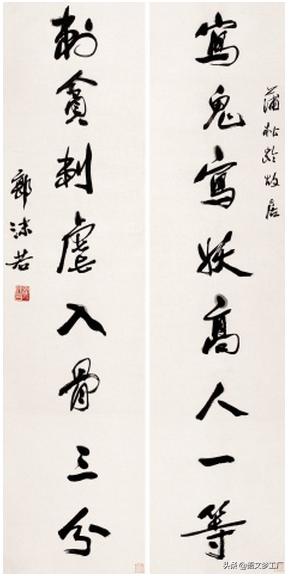 蒲松齡故居
寫鬼寫妖高人一等
刺貪刺虐入骨三分
郭沫若
头条 @语文梦工厂